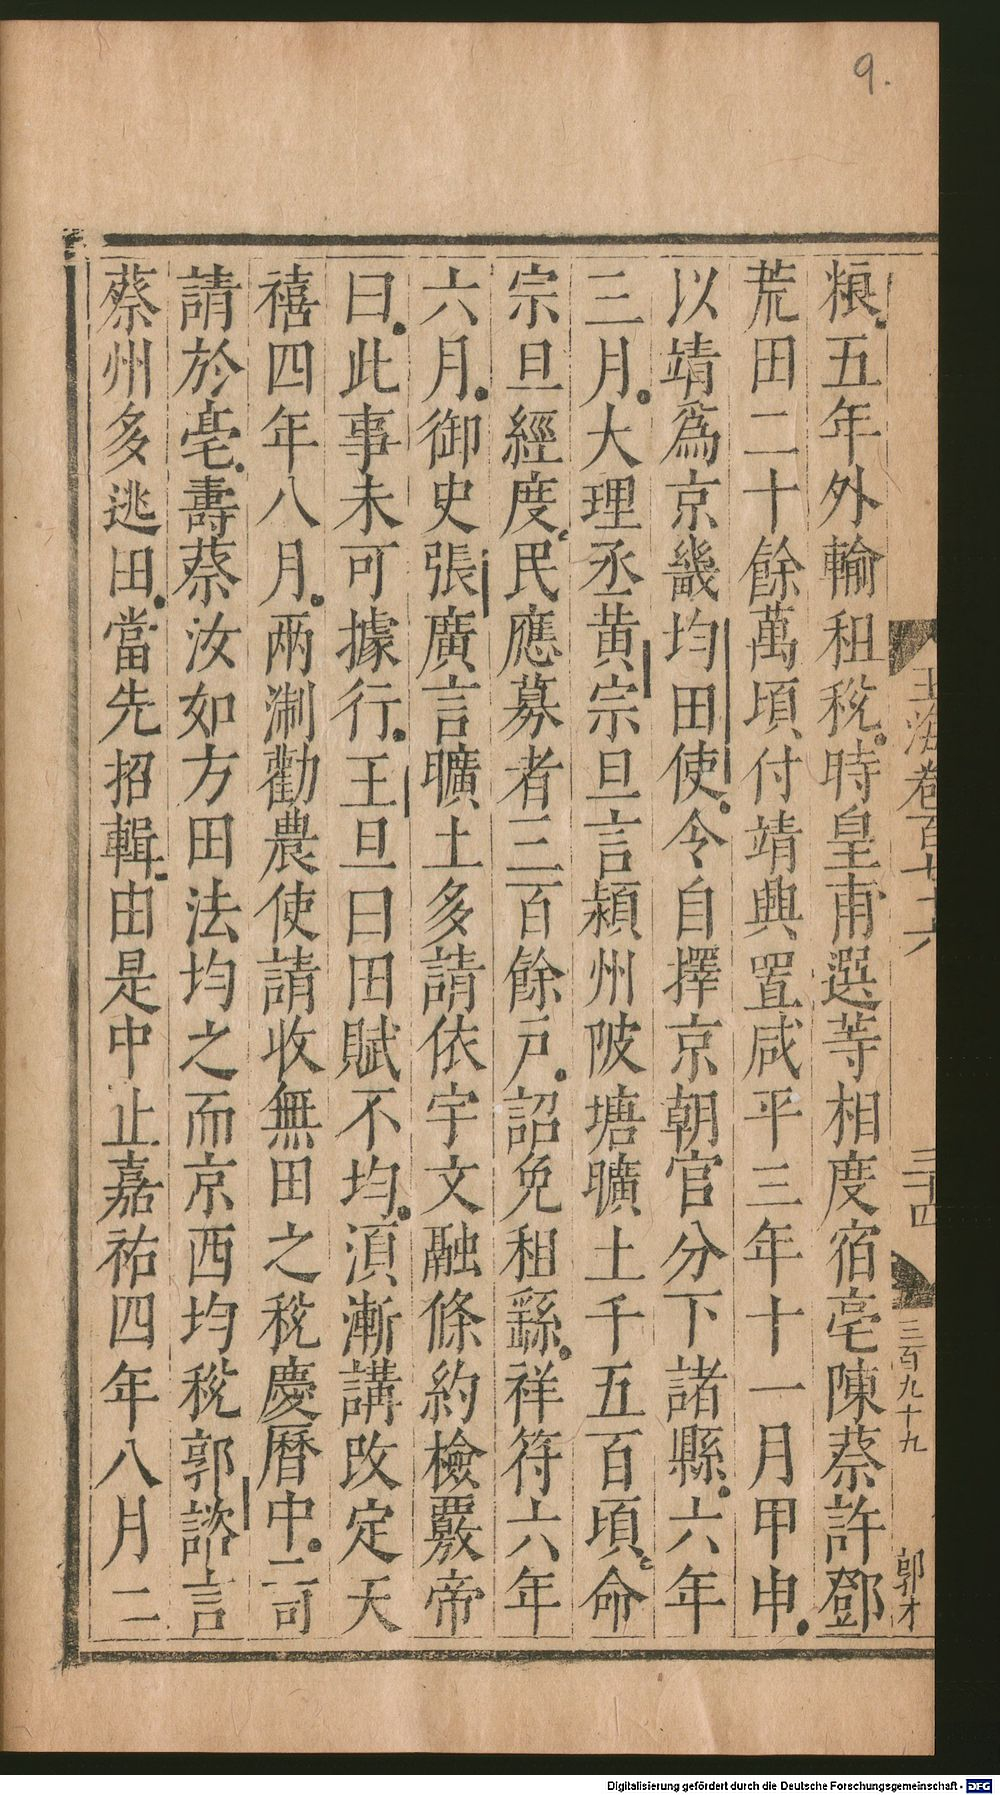 9.
玉海卷百七十六
三十四
三百九十九
郭才
粮五年外輸租稅時皇甫選等相度宿亳陳蔡許鄧
荒田二十餘萬頃付靖興置咸平三年十一月甲申
以靖爲京畿均田使令自擇京朝官分下諸縣六年
三月大理丞黄宗旦言潁州陂塘曠土千五百頃命
宗旦經度民應募者三百餘戸詔免租繇祥符六年
六月御史張廣言曠土多請依宇文融條約檢覈帝
曰此事未可據行王旦曰田賦不均湏漸講改定天
禧四年八月兩制勸農使請收無田之稅慶曆中二司
請於亳壽蔡汝如方田法均之而京西均稅郭諮言
蔡州多逃田當先招輯由是中止嘉祐四年八月二
Digitalisierung gefördert durch die Deutsche Forschungsgemeinschaft - DFG